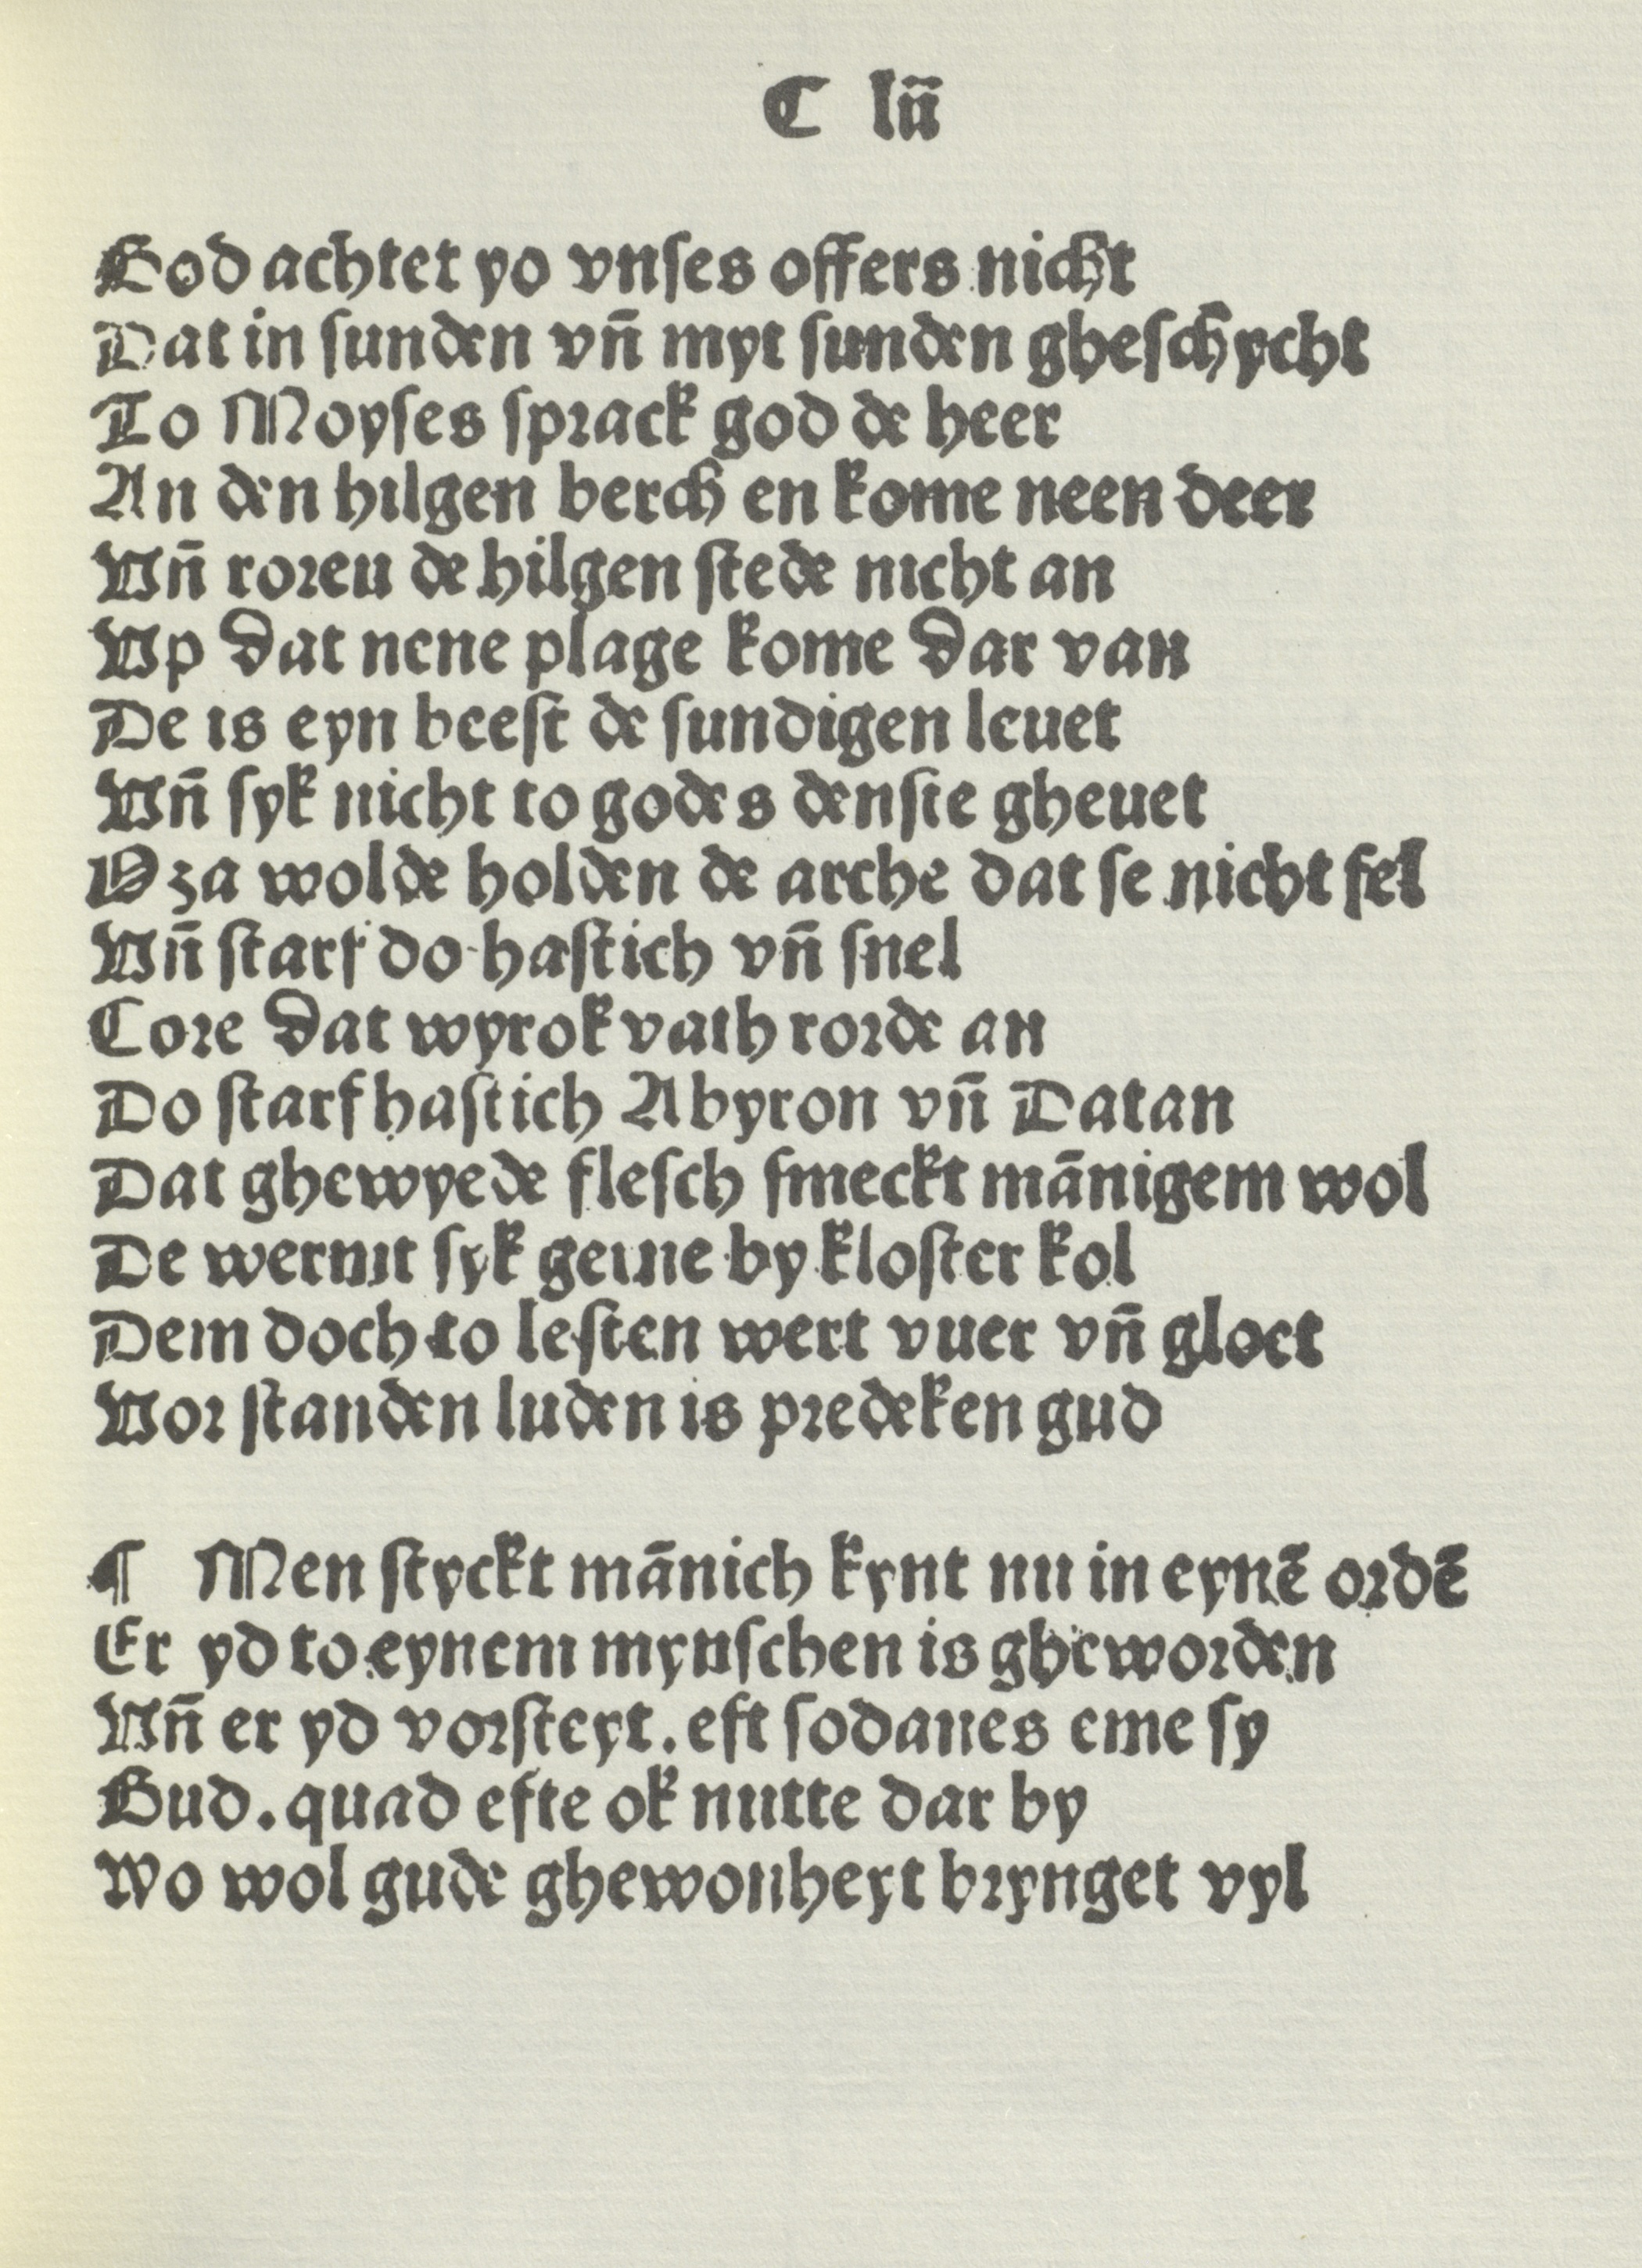 C lii
God achtet yo vnſes offers nicht
Dat in ſunden vn̄ myt ſunden gheſchycht
To Moyſes ſprack god de heer
An den hilgen berch en kome neen deer
Vn̄ roreu de hilgen ſtede nicht an
Vp dat nene plage kome dar van
De is eyn beeſt de ſundigen leuet
Vn̄ ſyk nicht to godes denſte gheuet
Oza wolde holden de arche dat ſe nicht fel
Vn̄ ſtarf do haſtich vn̄ ſnel
Core dat wyrok vath rorde an
Do ſtarf haſtich Abyron vn̄ Datan
Dat ghewyede fleſch ſmeckt mānigem wol
De wermt ſyk gerne by kloſter kol
Dem doch to leſten wert vuer vn̄ gloet
Vor ſtanden luden is predeken gud
¶ Men ſtyckt mānich kynt nu in eynē ordē
Er yd to eynem mynſchen is gheworden
Vn̄ er yd vorſteyt. eft ſodanes eme ſy
Gud. quad efte ok nutte dar by
Wo wol gude ghewonheyt brynget vyl